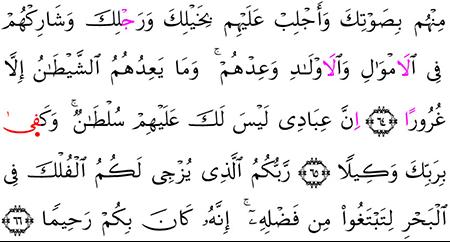 مِنْهُم بِصَوْتِكَ وَأَجْلِبْ عَلَيْهِم بِخَيْلِكَ وَرَجْلِكَ وَشَارِكْهُمْ
فِى الَامْوَٰلِ وَالَاوْلَٰدِ وَعِدْهُمْ ۚ وَمَا يَعِدُهُمُ الشَّيْطَٰنُ إِلَّا
غُرُورًا ٦٤ اِنَّ عِبَادِى لَيْسَ لَكَ عَلَيْهِمْ سُلْطَٰنٌ ۚ وَكَفىٰ
بِرَبِّكَ وَكِيلًا ٦٥ رَّبُّكُمُ الَّذِى يُزْجِى لَكُمُ الْفُلْكَ فِى
الْبَحْرِ لِتَبْتَغُوا۟ مِن فَضْلِهِۦٓ ۚ إِنَّهُۥ كَانَ بِكُمْ رَحِيمًا ٦٦